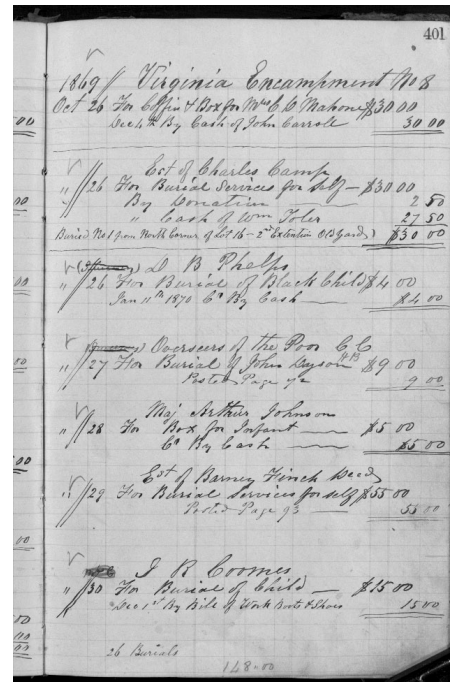 401
1869 // Virginia Encampment No 8
Oct 26 For Coffin & Box for Mrs C D Mahone $30 00
Dec 4th By Cash of John Carroll 30 00
Est of Charles Camp
" // 26 For Burial Services for self — $30 00
" By Donation 2 50
" Cash of Wm Toler 27 50
Buried No 1 from North Corner of Lot 16 - 2nd Extention O B Yard) $30 00
D B Phelps
" // 26 For Burial of Black Child $4 00
Jan 11th 1870 Cr By Cash $4 00
Overseers of the Poor C C
" // 27 For Burial of John Dyson $9 00
Posted Page 72 9 00
Maj Arthur Johnson
" // 28 For Box for Infant $5 00
Cr By Cash $5 00
Est of Barney Finch Decd
" // 29 For Burial Services for self $55 00
Posted Page 93 55 00
J R Coomes
" // 30 For Burial of Child — $15 00
Dec 1st By Bill of Work Boots & Shoes 15 00
26 Burials
148-00